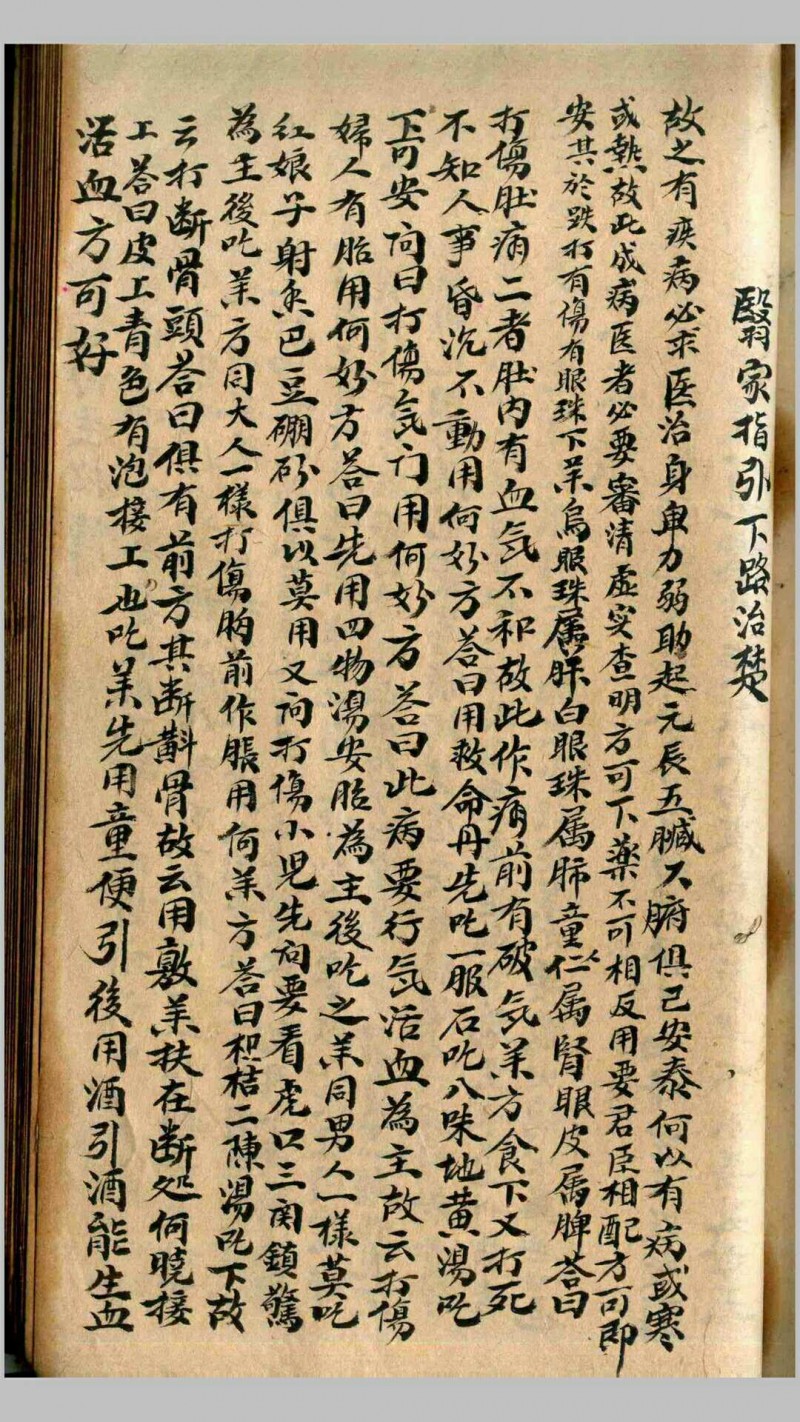 醫家指引下路治墊
故之有疾病必求医治身軰力弱助起元辰五臟六腑俱已安泰何以有病或寒
或熱故此成病医者必要審清虛实查明方可下藥不可相反用要君臣相配方可即
安其於跌打有傷有眼珠下羊烏眼珠属肝白眼珠属肺童仁属腎眼皮属脾答曰
打傷肚痛二者肚内有血氣不和故此作痛前有破氣羊方食下又打死
不知人事昏沉不動用何妙方答曰用救命丹先吃一服石吃八味地黄湯吃
下可安问曰打傷氣门用何妙方答曰此病要行氣活血為主故云打傷
婦人有胎用何妙方答曰先用四物湯安胎為主後吃之羊同男人一樣莫吃
红娘子射香巴豆硼砂俱以莫用又问打傷小児先问要看虎口三関鎖驚
為主後吃羊方同大人一樣打傷胸前作脹用何羊方答曰枳桔二陳湯吃下故
云打断骨頭答曰俱有前方其断斢骨故云用敷羊扶在断处何曉接
工答曰皮工青色有泡接工也吃羊先用童便引後用酒引酒能生血
活血方可好